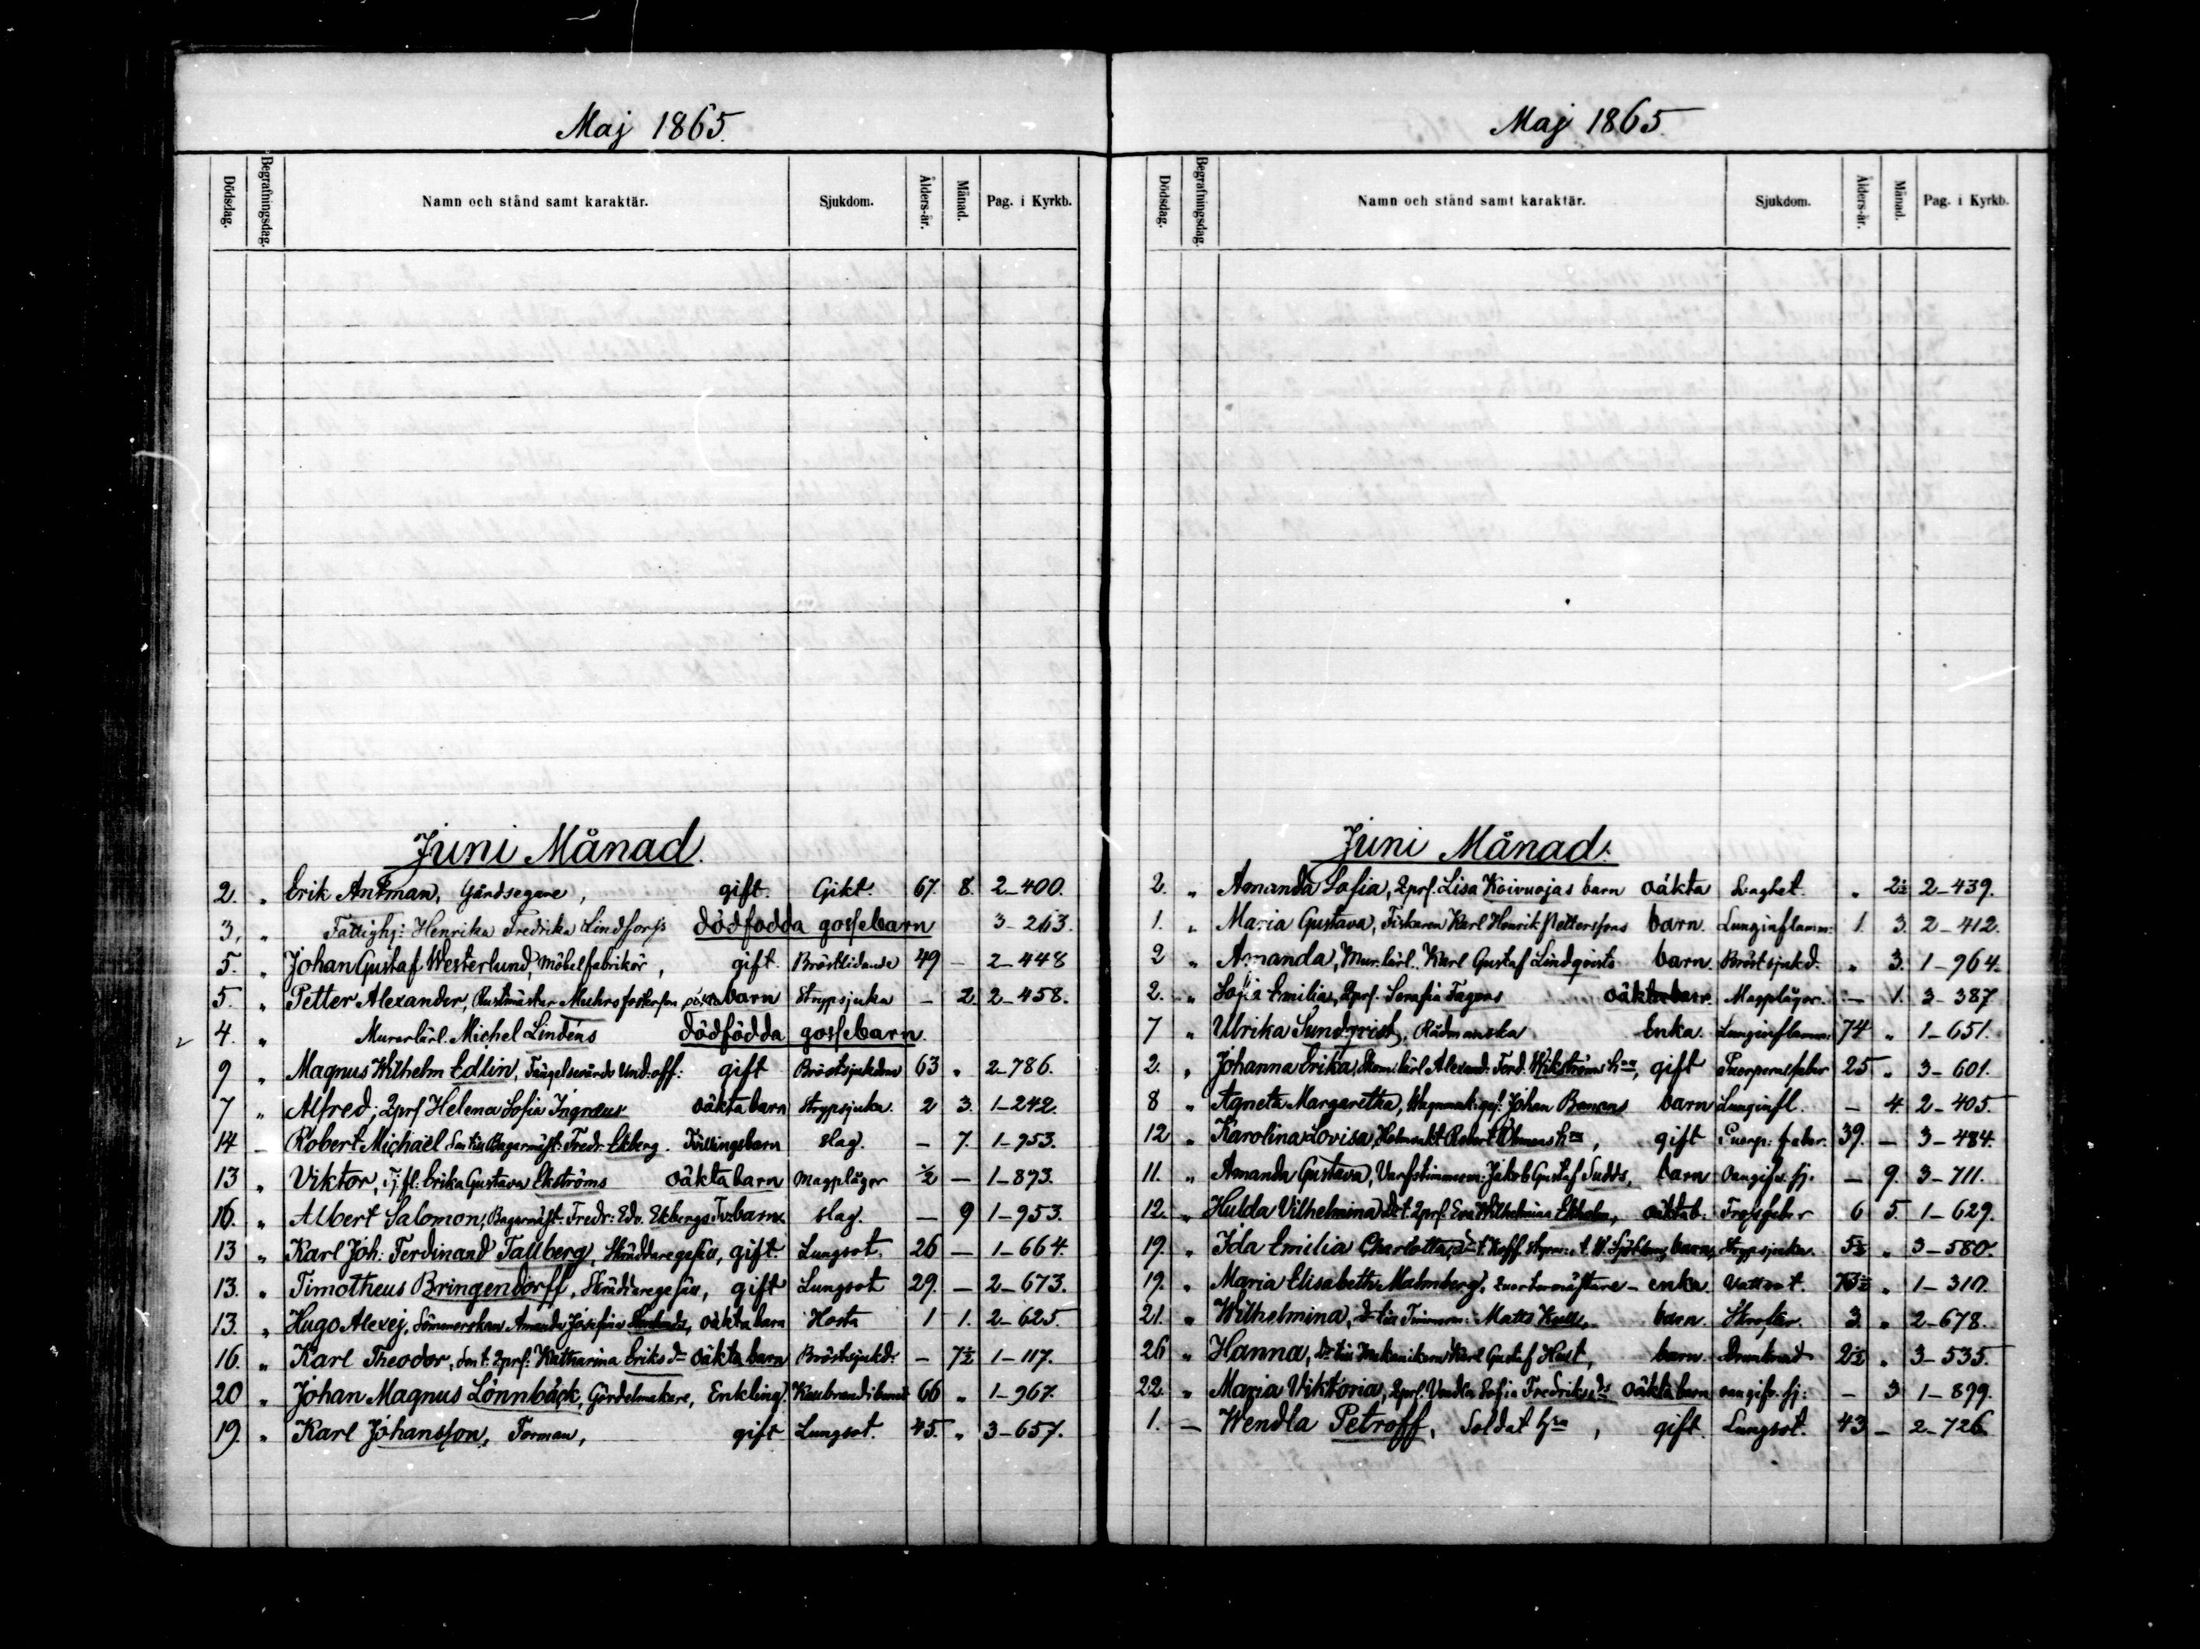 Maj 1865.
Dödsdag. Begrafningsdag. Namn och stånd samt karaktär. Sjukdom. Ålders-år. Månad. Pag. i Kyrkb.
Juni Månad.
2. " Erik Antman, Gårdsegare, gift. Gikt. 67. 8. 2-400.
3, " Fattighj: Henrika Fredrika Lindforss dödfodda gossebarn 3-263.
5. " Johan Gustaf Westerlund, Möbelfabrikör, gift. Bröstlidande 49 - 2-448
5. " Petter Alexander, barn Strypsjuka - 2. 2-458.
4. " Murarlärl. Michel Lindéns dödfödda gossebarn.
9 " Magnus Wilhelm Edlin, Fängelsevårds Und:off: gift Bröstsjukdom 63 " 2-786.
7 " Alfred, 2prf Helena Sofia Ingraeus oäkta barn Strypsjuka. 2 3. 1-242.
14 - Robert Michael Son till Bagarmäst: Fredr: Ekberg. Tvillingsbarn slag. - 7. 1-953.
13 " Viktor, Tjfl. Erika Gustava Ekströms oäkta barn Magplågor ½ - 1-893.
16. " Albert Salomon, Bagarmäst: Fredr: Edv. Ekbergs Tv:barn. slag. - 9 1-953.
13 " Karl Joh: Ferdinand Tallberg, Skräddaregesäll, gift. Lungsot. 26 - 1-664.
13. " Timotheus Bringendorff, Skräddaregesäll, gift Lungsot 29. - 2-673.
13. " Hugo Alexej, Sömmerskan Amanda Josefina oäkta barn Hosta 1 1. 2-625.
16. " Karl Theodor, Son t. 2prf: Katharina Eriksdr oäkta barn Bröstsjukd: - 7½ 1-117.
20 " Johan Magnus Lönnbäck, Gördelmakare, Enkling. 66 " 1-967.
19. " Karl Johansson, Forman, gift Lungsot. 45. " 3-657.
Maj 1865
Dödsdag. Begrafningsdag. Namn och stånd samt karaktär. Sjukdom. Ålders-år. Månad. Pag. i Kyrkb.
Juni Månad.
2. " Amanda Sofia, 2prf. Lisa Koivuojas barn oäkta Svaghet. " 2½ 2-439.
1. " Maria Gustava, Fiskaren Karl Henrik Petterssons barn. Lunginflamm: 1. 3. 2-412.
2 " Amanda, Mur.lärl. Karl Gustaf Lindqvists barn. Bröstsjukd. " 3. 1-964.
2. " Sofia Emilia, 2prf. Serafia Fagers oäkta barn. Magplågor. - 1. 3-387
7 " Ulrika Sundqvist, Rådmanska Enka. Lunginflamm: 74 " 1-651.
2. " Johanna Erika, Alexand: Ferd. Wikströms hru, gift Puerperalfeber 25 " 3-601.
8 " Agneta Margaretha, Wagnmak:ges: Johan Bomans barn Lunginfl. - 4. 2-405.
12 " Karolina Lovisa, Robert hru, gift Puerp: feber. 39. - 3-484.
11. " Amanda Gustava, Varfstimmerm: Jakob Gustaf Sudds, barn oangifv. sj. - 9. 3-711.
12. " Hulda Vilhelmina Dr t. 2prf. Eva Wilhelmina Ekholm, oäkta b. 6 5. 1-629.
19. " Ida Emilia Charlotta, barn, Strypsjuka. 5½ " 3-580.
19. " Maria Elisabeth Malmberg, enka. Vattsot. 73½ " 1-310.
21. " Wilhelmina, Dr till Timmerm: Matts barn. Skrofler. 3. " 2-678.
26 " Hanna, Dr till Mekanikern Karl Gustaf barn. 2½ " 3-535.
22. " Maria Viktoria, 2prf. Vendla Sofia Fredriksdrs oäkta barn oangifv. sj: - 3 1-899.
1. - Wendla Petroff, Soldat hru, gift. Lungsot. 43 - 2-726